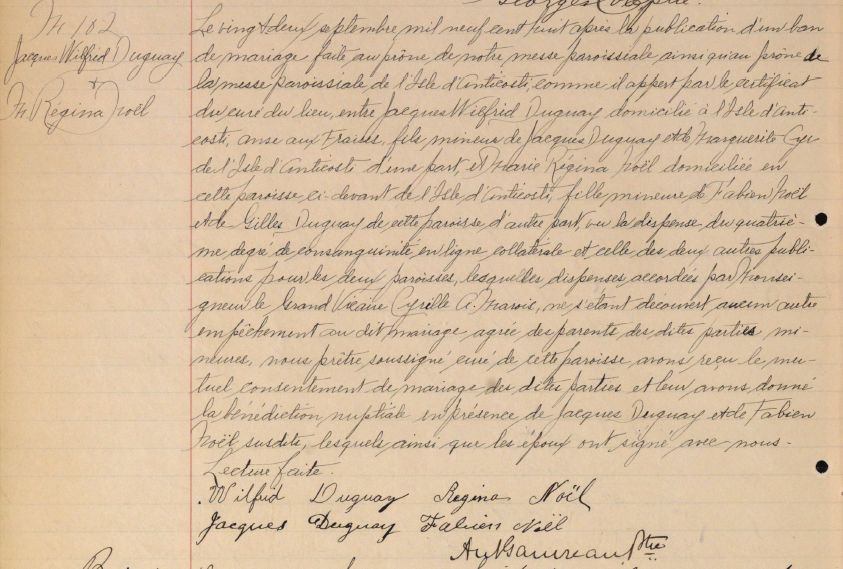 M 102
Jacques Wilfrid Duguay
+
M. Régina Noël
Le vingt deux septembre mil neuf cent huit après la publication d'un ban
de mariage faite au prône de notre messe paroissiale ainsi qu'au prône de
la messe paroissiale de l'Isle d'Anticosti, comme il appert par le certificat
du curé du lieu, entre Jacques Wilfrid Duguay domicilié à l'Isle d'Anti-
costi, anse aux Fraises, fils mineur de Jacques Duguay et de Marguerite Cyr
de l'Isle d'Anticosti d'une part, et Marie Régina Noël domiciliée en
cette paroisse, ci-devant de l'Isle d'Anticosti, fille mineure de Fabien Noël
et de Gilles Duguay de cette paroisse d'autre part, vu la dispense du quatriè-
me degré de consanguinité en ligne collatérale et celle des deux autres publi-
cations pour les deux paroisses, lesquelles dispenses accordées par Monsei-
gneur le Grand Vicaire Cyrille A. Marois, ne s'étant decouvert aucun autre
empêchement au dit mariage, agrée des parents des dites parties mi-
neures, nous prêtre soussigné curé de cette paroisse avons reçu le mu-
tuel consentement de mariage des dites parties et leur avons donné
la bénédiction nuptiale en présence de Jacques Duguay et de Fabien
Noël susdits, lesquels ainsi que les époux ont signé avec nous.
Lecture faite.
Wilfrid Duguay Regina Noël
Jacques Duguay Fabien Noël
Ptre